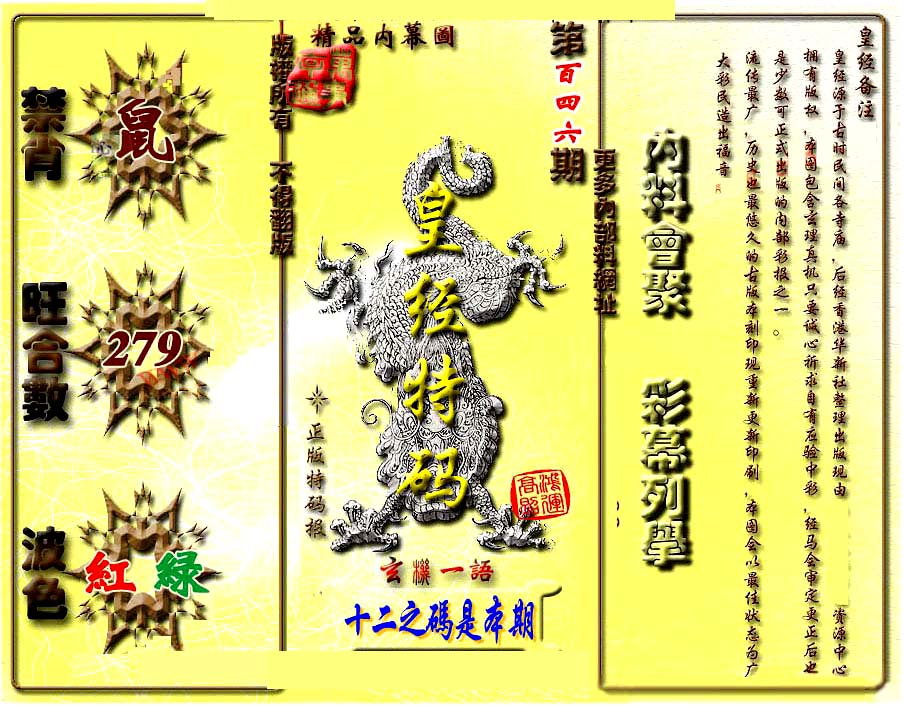 精品内幕圖
第百四六期
版權所有 不得翻版
更多內部料網址
禁肖
鼠
旺合數
279
波色
紅 綠
皇经特码
正版特码报
鴻運高照
玄機一語
十二之碼是本期
內料會聚
彩幕列舉
皇经备注
皇经源于古时民间各寺庙，后经香港华新社整理出版现由 资源中心
拥有版权，本图包含玄理真机只要诚心祈求自有应验中彩，经马会审定更正后也
是少数可正式出版的内部彩报之一。
流传最广，历史也最悠久的古版本刻印现重新更新印刷，本图会以最佳状态为广
大彩民造出福音